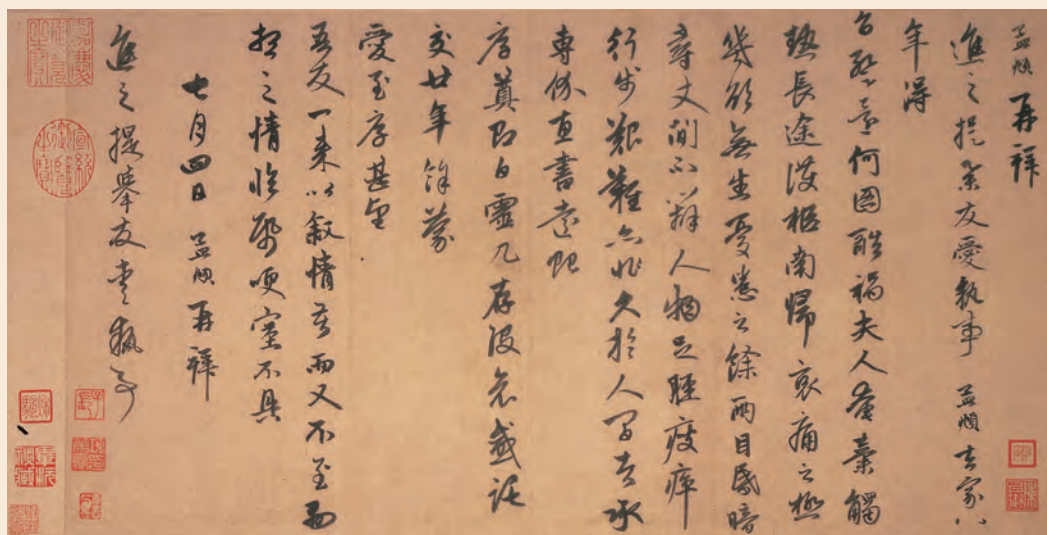 孟頫再拜
進之提舉友愛執事孟頫去家八
年得
旨暫還何圖酷禍夫人奄棄觸
熱長途護柩南歸哀痛之極
幾欲無生憂患之餘兩目昏暗
尋丈間不辯人物足脛瘦瘁
行步艱難亦非久於人間者承
專価惠書遠貺
厚奠即白靈几存沒哀感託
交廿年餘蒙
愛至厚甚望
吾友一來以敘情苦而又不至
相之情臨紙哽塞不具
七月四日孟頫再拜
進之提舉友愛執事